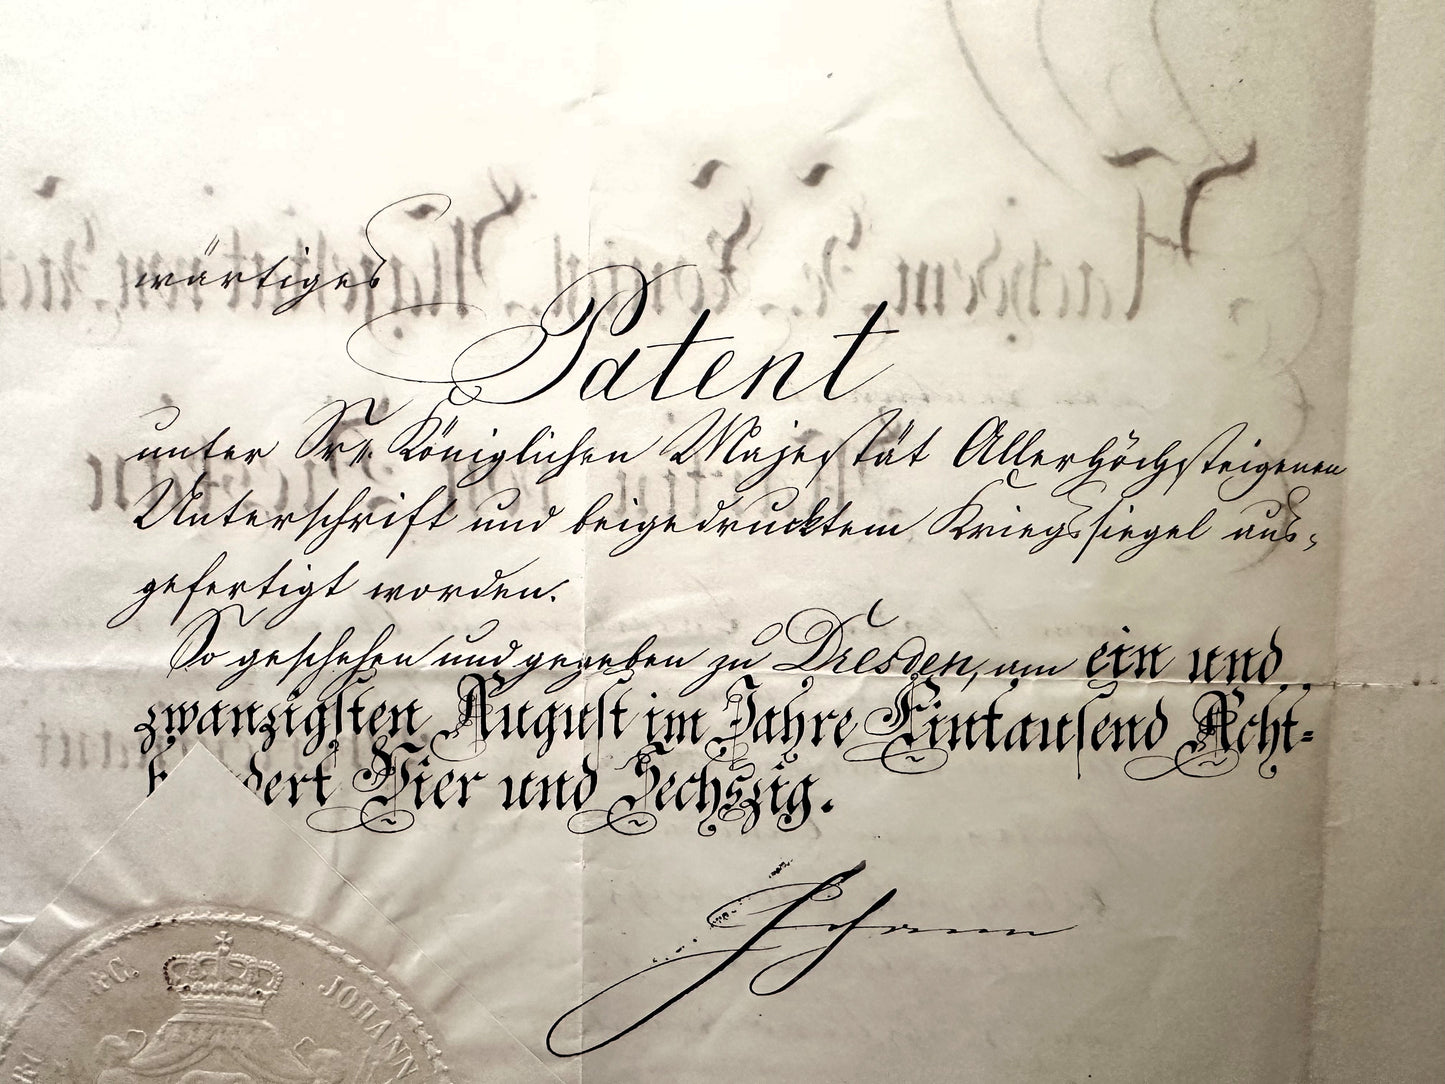 wärtiges
Patent
unter Sr. Königlichen Majestät Allerhöchsteigenen
Unterschrift und beigedrucktem Kriegssiegel aus-
gefertigt worden.
So geschehen und gegeben zu Dresden, am ein und
zwanzigsten August im Jahre Eintausend Acht-
dert Vier und Sechszig.
Johann
JOHANN